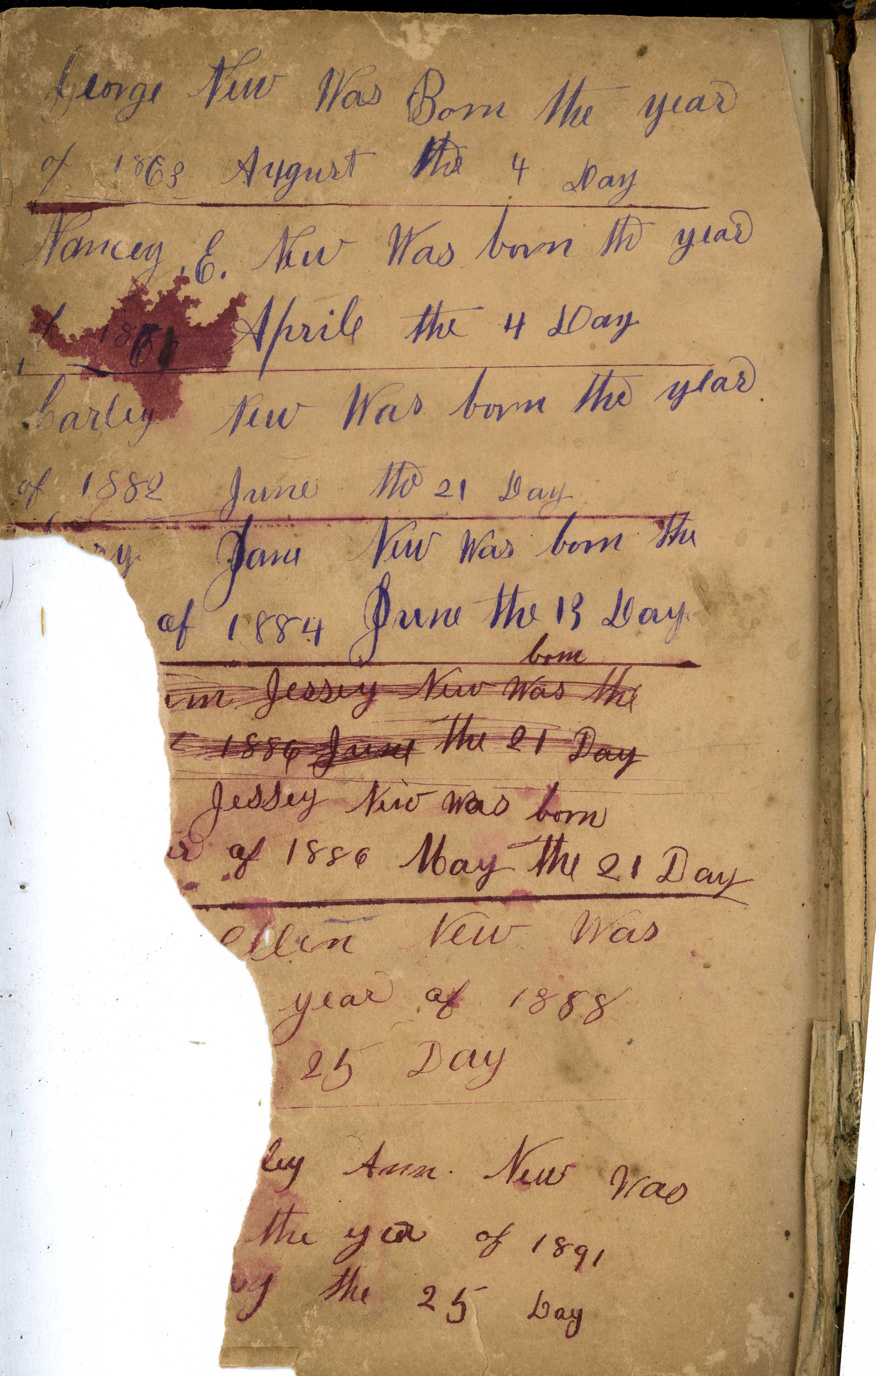 George New Was Born the year
of 1863 August the 4 Day
Nancey E. New Was born the year
of Aprile the 4 Day
Carley New Was born the year
of 1882 June the 21 Day
Jane New Was born the
of 1884 June the 13 Day
born
Jessey New Was the
1886 June the 21 Day
Jessey New Was born
of 1886 May the 21 Day
ellen New Was
year of 1888
25 Day
ley Ann. New Was
the year of 1891
the 25 Day